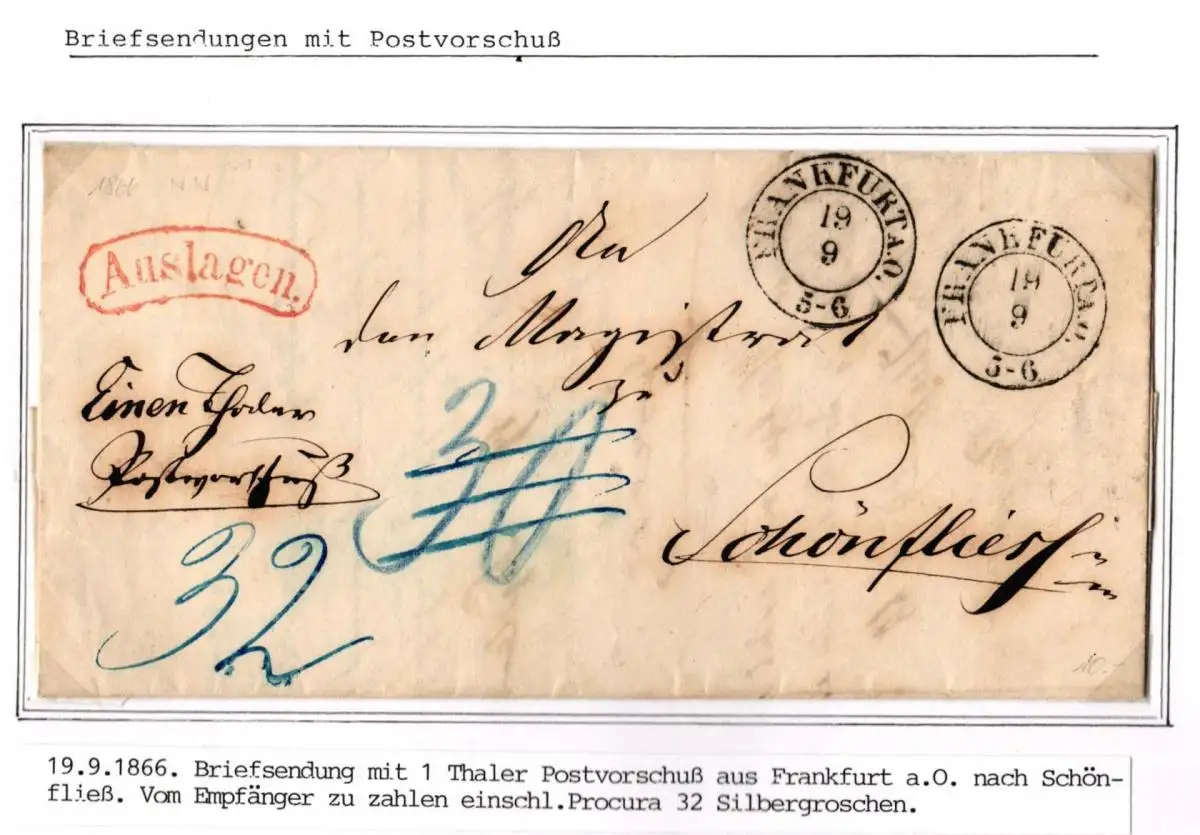 Briefsendungen mit Postvorschuß
1866 NN
Auslagen.
FRANKFURT A.O.
19
9
5-6
FRANKFURT A.O.
19
9
5-6
An
den Magistrat
zu
Schönfliess
Einen Thaler
Postvorschuß
30
32
10.-
19.9.1866. Briefsendung mit 1 Thaler Postvorschuß aus Frankfurt a.O. nach Schön-
fließ. Vom Empfänger zu zahlen einschl.Procura 32 Silbergroschen.